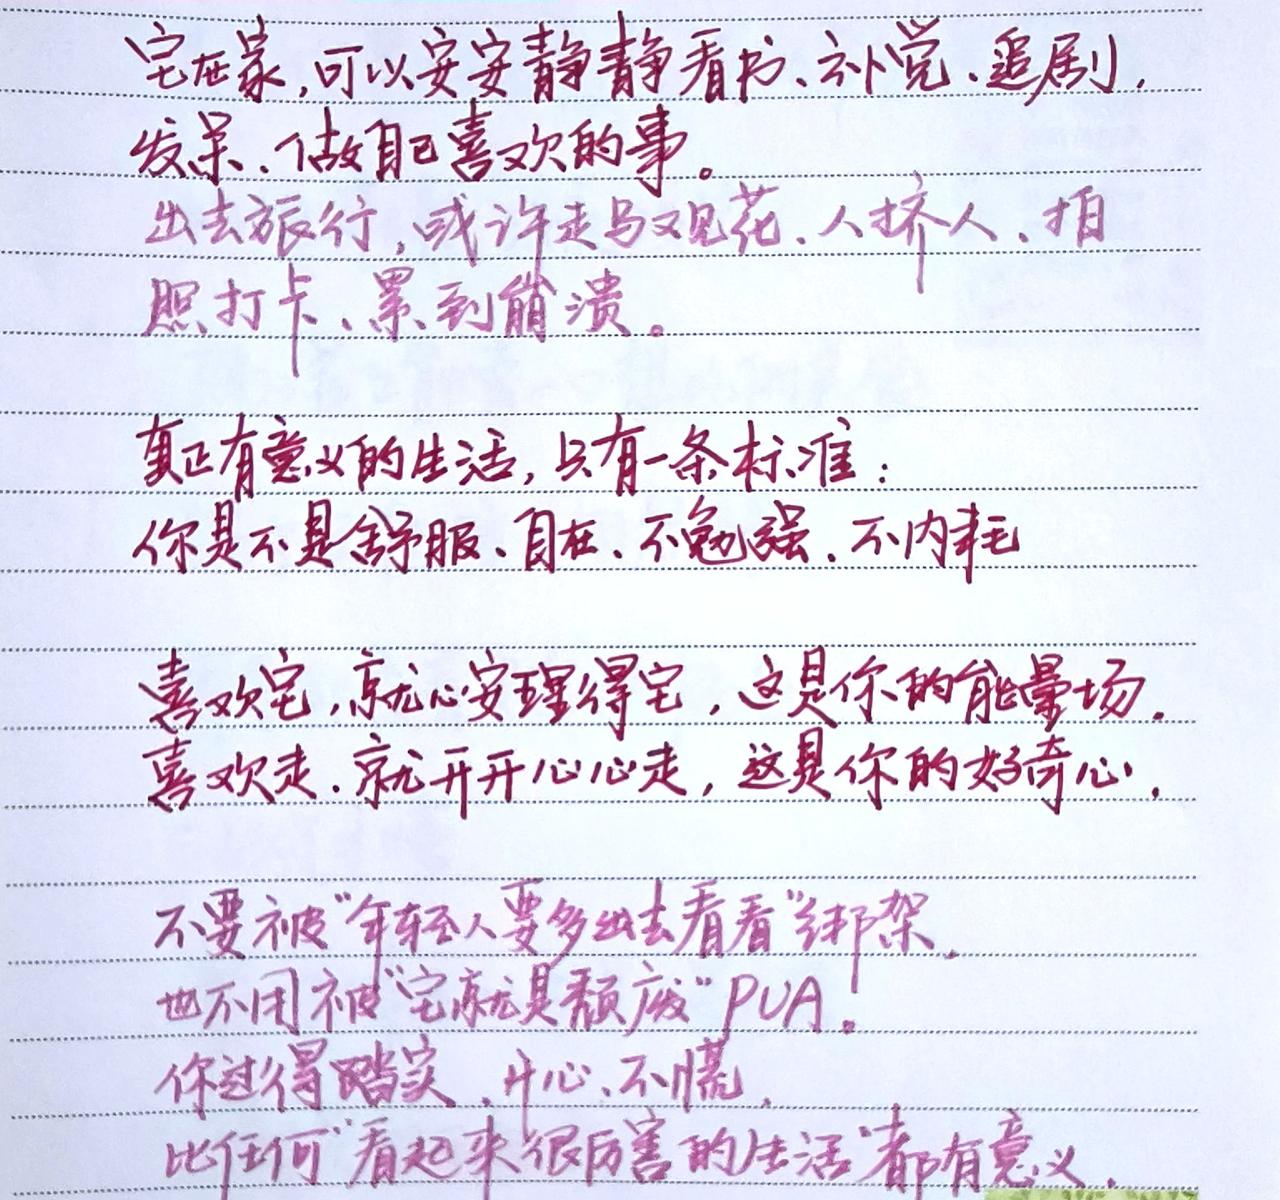 宅在家,可以安安静静看书、补觉、追剧,
发呆、做自己喜欢的事。
出去旅行,或许走马观花、人挤人、拍
照打卡、累到崩溃。
真正有意义的生活,只有一条标准:
你是不是舒服、自在、不勉强、不内耗
喜欢宅,就心安理得宅,这是你的能量场.
喜欢走.就开开心心走,这是你的好奇心.
不要被"年轻人要多出去看看"绑架.
也不用被"宅就是颓废"PUA。
你过得踏实、开心、不慌,
比任何"看起来很厉害的生活"都有意义.